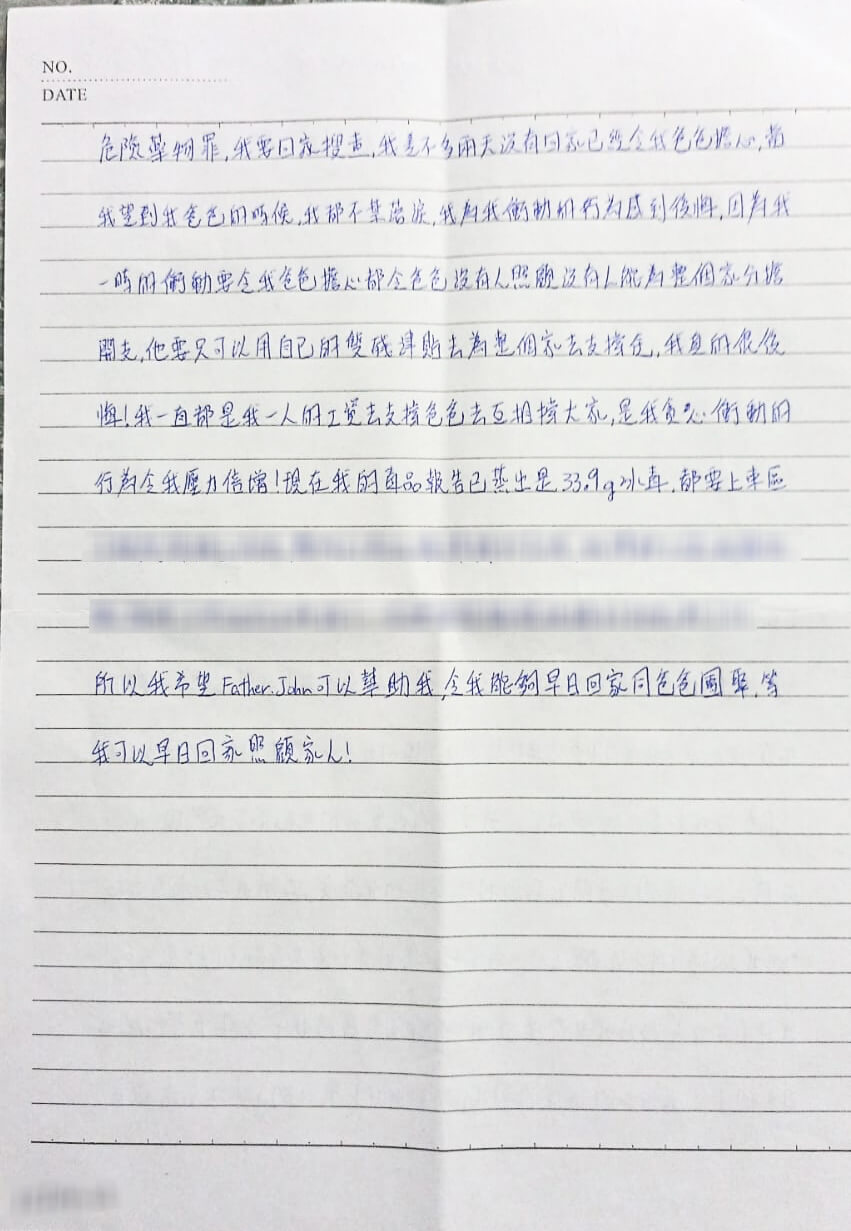 NO.
DATE
危險藥物罪,我要回家搜查,我差不多兩天沒有回家已經令我爸爸擔心,當
我望到我爸爸的時候,我都不禁落淚,我為我衝動的行為感到後悔,因為我
一時的衝動要令我爸爸擔心都令爸爸沒有人照顧沒有人能為整個家分擔
開支,他要只可以用自己的雙殘津貼去為整個家去支撐住,我真的很後
悔!我一直都是我一人的工資去支撐爸爸去互相撐大家,是我貪心衝動的
行為令我壓力倍增!現在我的毒品報告已蒸出是33.9g冰毒,都要上東區
所以我希望Father.John可以幫助我,令我能夠早日回家同爸爸團聚,等
我可以早日回家照顧家人!